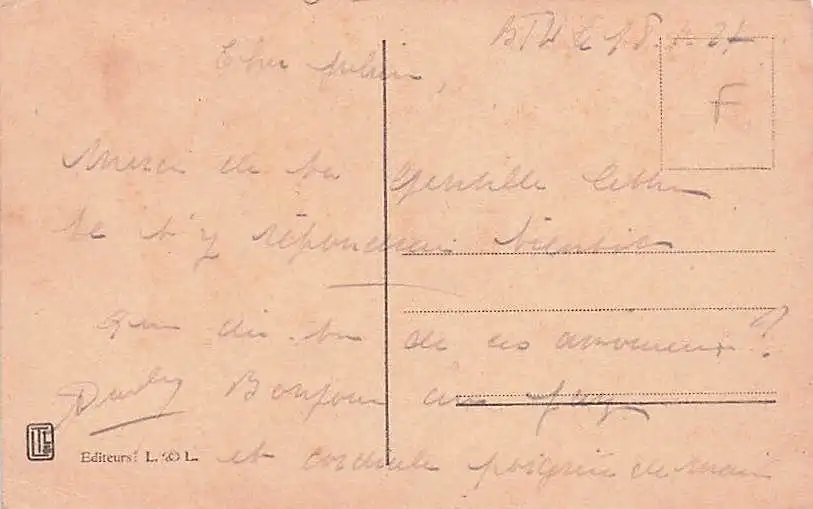 F
Cher
Merci de ta gentille lettre
Je t'y répondrai bientôt
Que dis-tu de ces amoureux?
Bonjour aux
et cordiale poignée de main
Editeurs: L. & L.